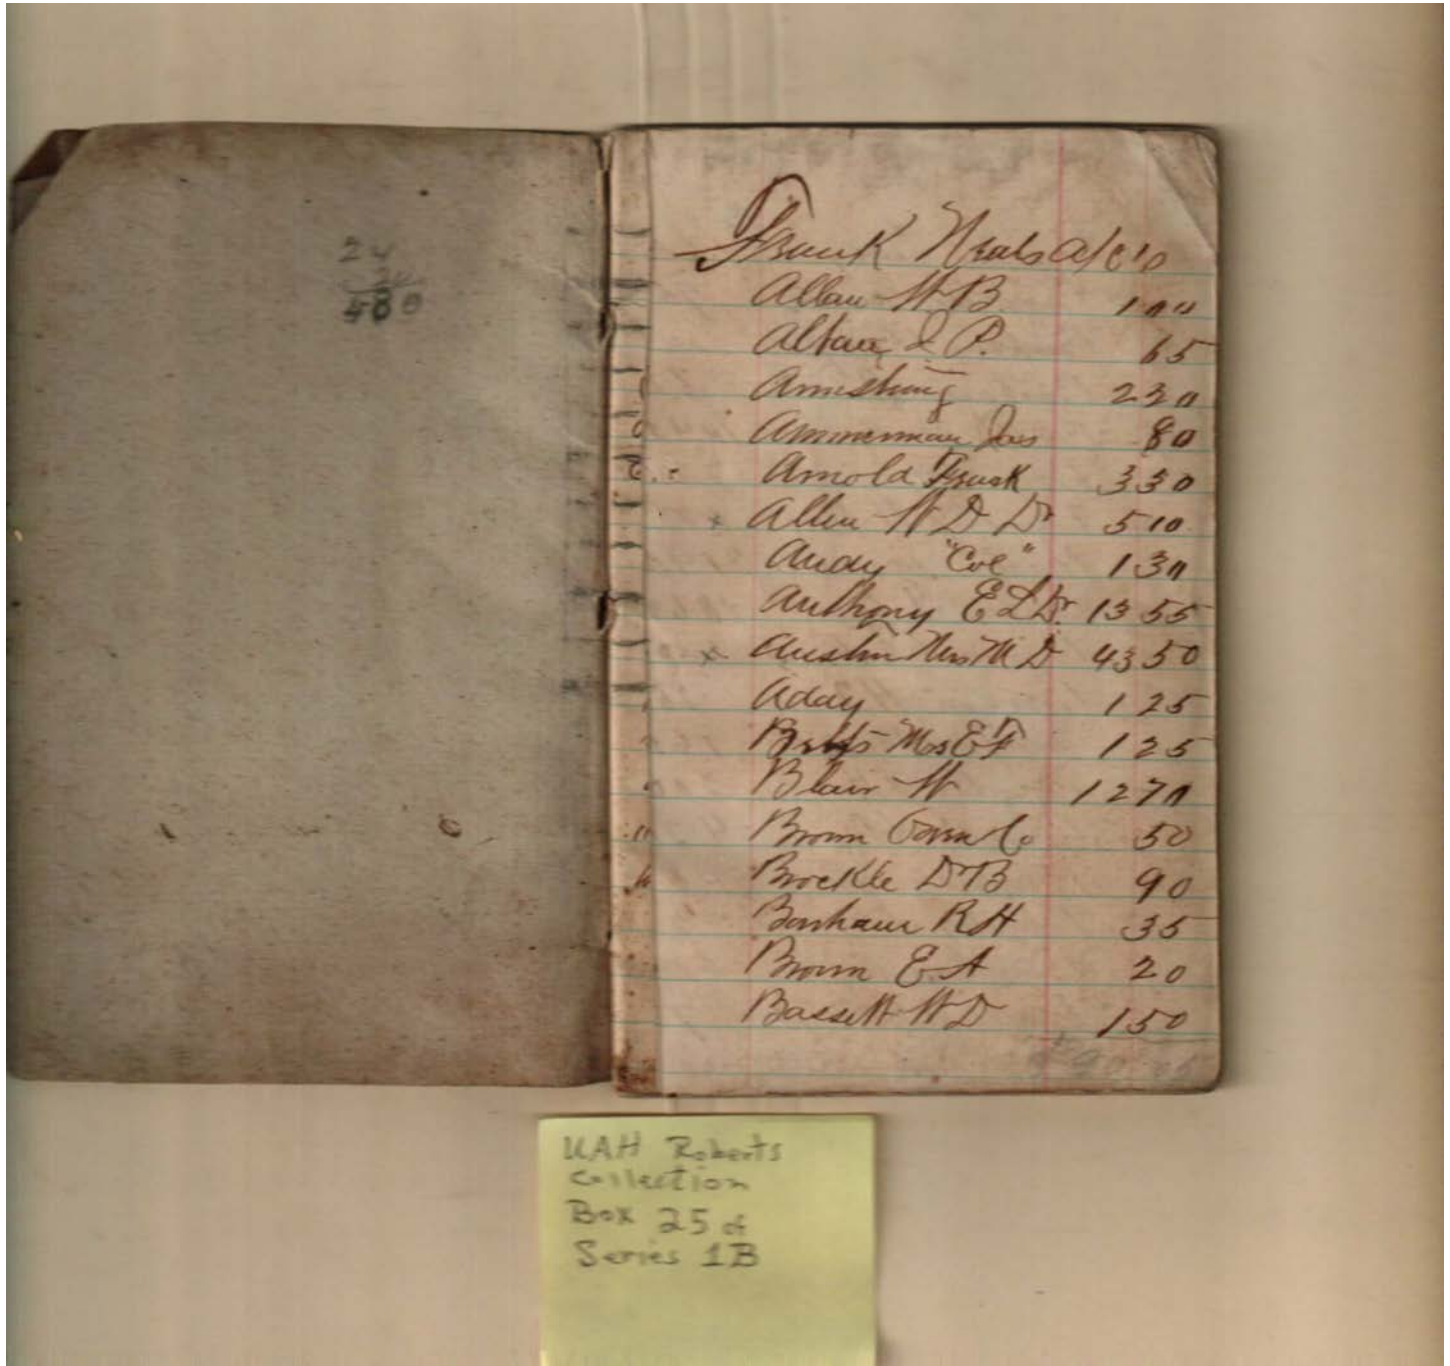 24
580
Frank Neals a/c's
Allan W B. 100
P. 65
Armstrong 230
Ammerman Jas 80
Arnold Frank 330
x Allen W D Dr 510
Andy "Col" 130
Anthony E L Dr. 13 55
x Austin Mrs M D 43 50
Aday 1 25
Mrs E F 1 25
Blair W 12 70
Brown Co 50
Brockle D B 90
Bonham R H 35
Brown E. A 20
Bassett W D 1 50
UAH Roberts
Collection
Box 25 of
Series 1B